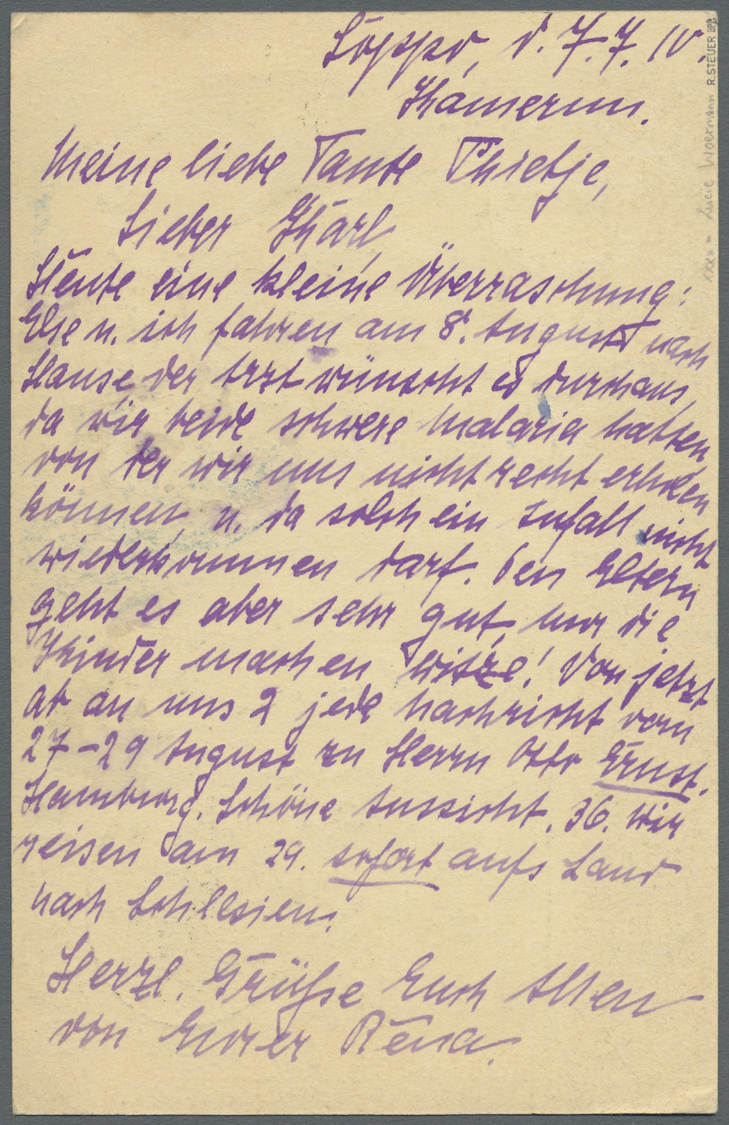 Soppo, d. 7.7.10.
Kamerun.
Meine liebe Tante Thietje,
Lieber Karl,
Heute eine kleine Überraschung:
Ehe u. ich fahren am 8. August nach
Hause der Arzt wünscht es durchaus,
da wir beide schwere Malaria hatten,
von der wir uns nicht recht erholen
können, u. da solch ein Zufall nicht
wiederkommen darf. Den Eltern
geht es aber sehr gut, nur die
Kinder machen Witze! Von jetzt
ab an uns 2 jede Nachricht vom
27-29 August zu Herrn Otto Ernst.
Hamburg. Schöne Aussicht. 36. Wir
reisen am 29. sofort aufs Land
nach Schlesien.
Herzl. Grüße Euch Allen
von Eurer Rena.
R. STEUER BPP
Lucie Woermann